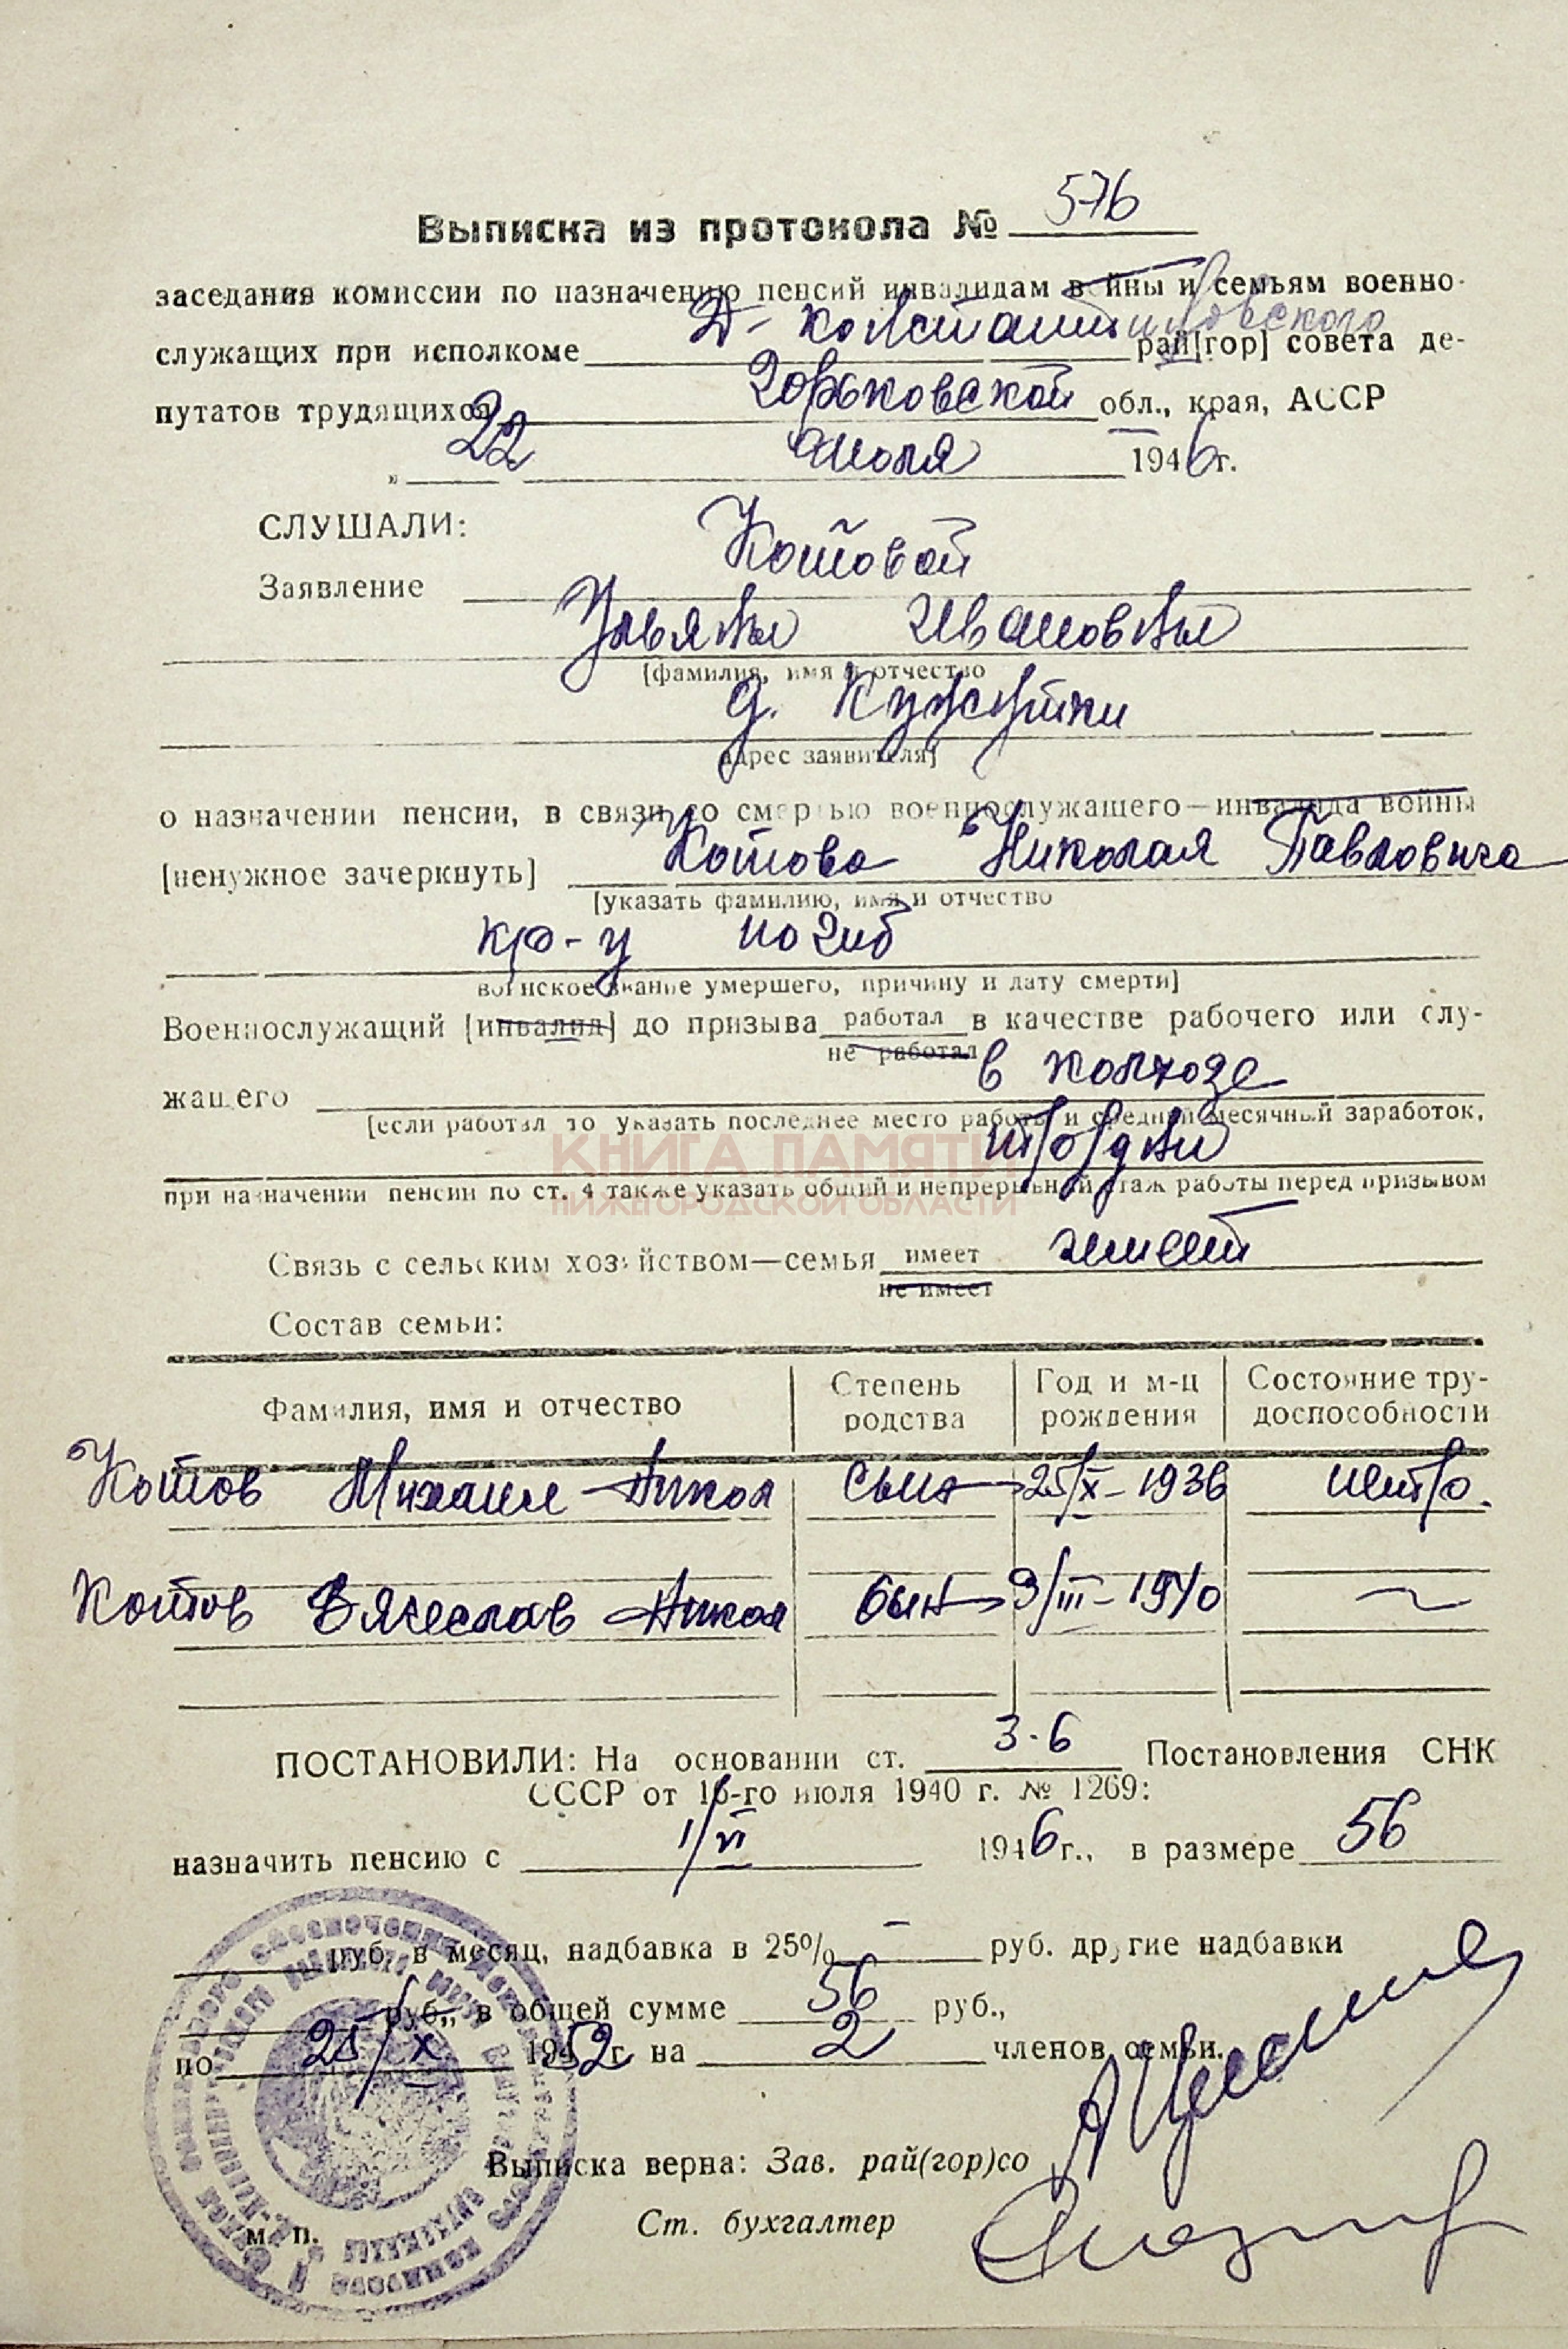 Выписка из протокола № 576
заседания комиссии по назначению пенсий инвалидам войны и семьям военно-
служащих при исполкоме Д-Константиновского рай[гор] совета де-
путатов трудящихся Горьковской обл., края, АССР
„ 22 июля 1946 г.
СЛУШАЛИ:
Заявление Котовой
Ульяны Ивановны
[фамилия, имя и отчество
д. Кужутки
адрес заявителя]
о назначении пенсии, в связи со смертью военнослужащего—инвалида войны
[ненужное зачеркнуть] Котова Николая Павловича
[указать фамилию, имя и отчество
кр-ц погиб
воинское звание умершего, причину и дату смерти]
Военнослужащий [инвалид] до призыва работал в качестве рабочего или слу-
не работал
жащего в колхозе
[если работал то указать последнее место работы и средний месячный заработок,
тр/дни
при назначении пенсии по ст. 4 также указать общий и непрерывный стаж работы перед призывом
КНИГА ПАМЯТИ
НИЖЕГОРОДСКОЙ ОБЛАСТИ
Связь с сельским хозяйством—семья имеет имеет
не имеет
Состав семьи:
Фамилия, имя и отчество Степень родства Год и м-ц рождения Состояние тру-доспособности
Котов Михаил Никол сын 25/X-1936 нетр.
Котов Вячеслав Никол сын 9/III-1940 ~
ПОСТАНОВИЛИ: На основании ст. 3-6 Постановления СНК
СССР от 16-го июля 1940 г. № 1269:
назначить пенсию с 1/VI 1946 г., в размере 56
руб. в месяц, надбавка в 25% – руб. другие надбавки
руб., в общей сумме 56 руб.,
по 25/X 1952 г на 2 членов семьи.
Выписка верна: Зав. рай(гор)со
Ст. бухгалтер
м. п.